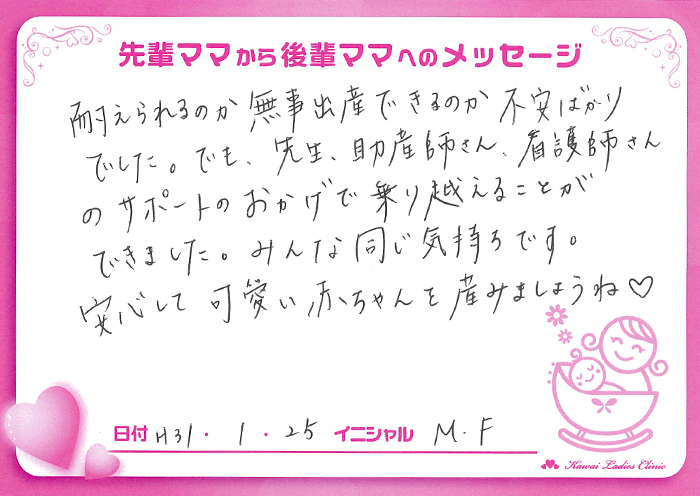 先輩ママから後輩ママへのメッセージ
耐えられるのか 無事出産できるのか 不安ばかり
でした。でも、先生、助産師さん、看護師さん
のサポートのおかげで乗り越えることが
できました。みんな同じ気持ちです。
安心して 可愛い赤ちゃんを産みましょうね♡
日付 H31・1・25 イニシャル M.F
Kawai Ladies Clinic